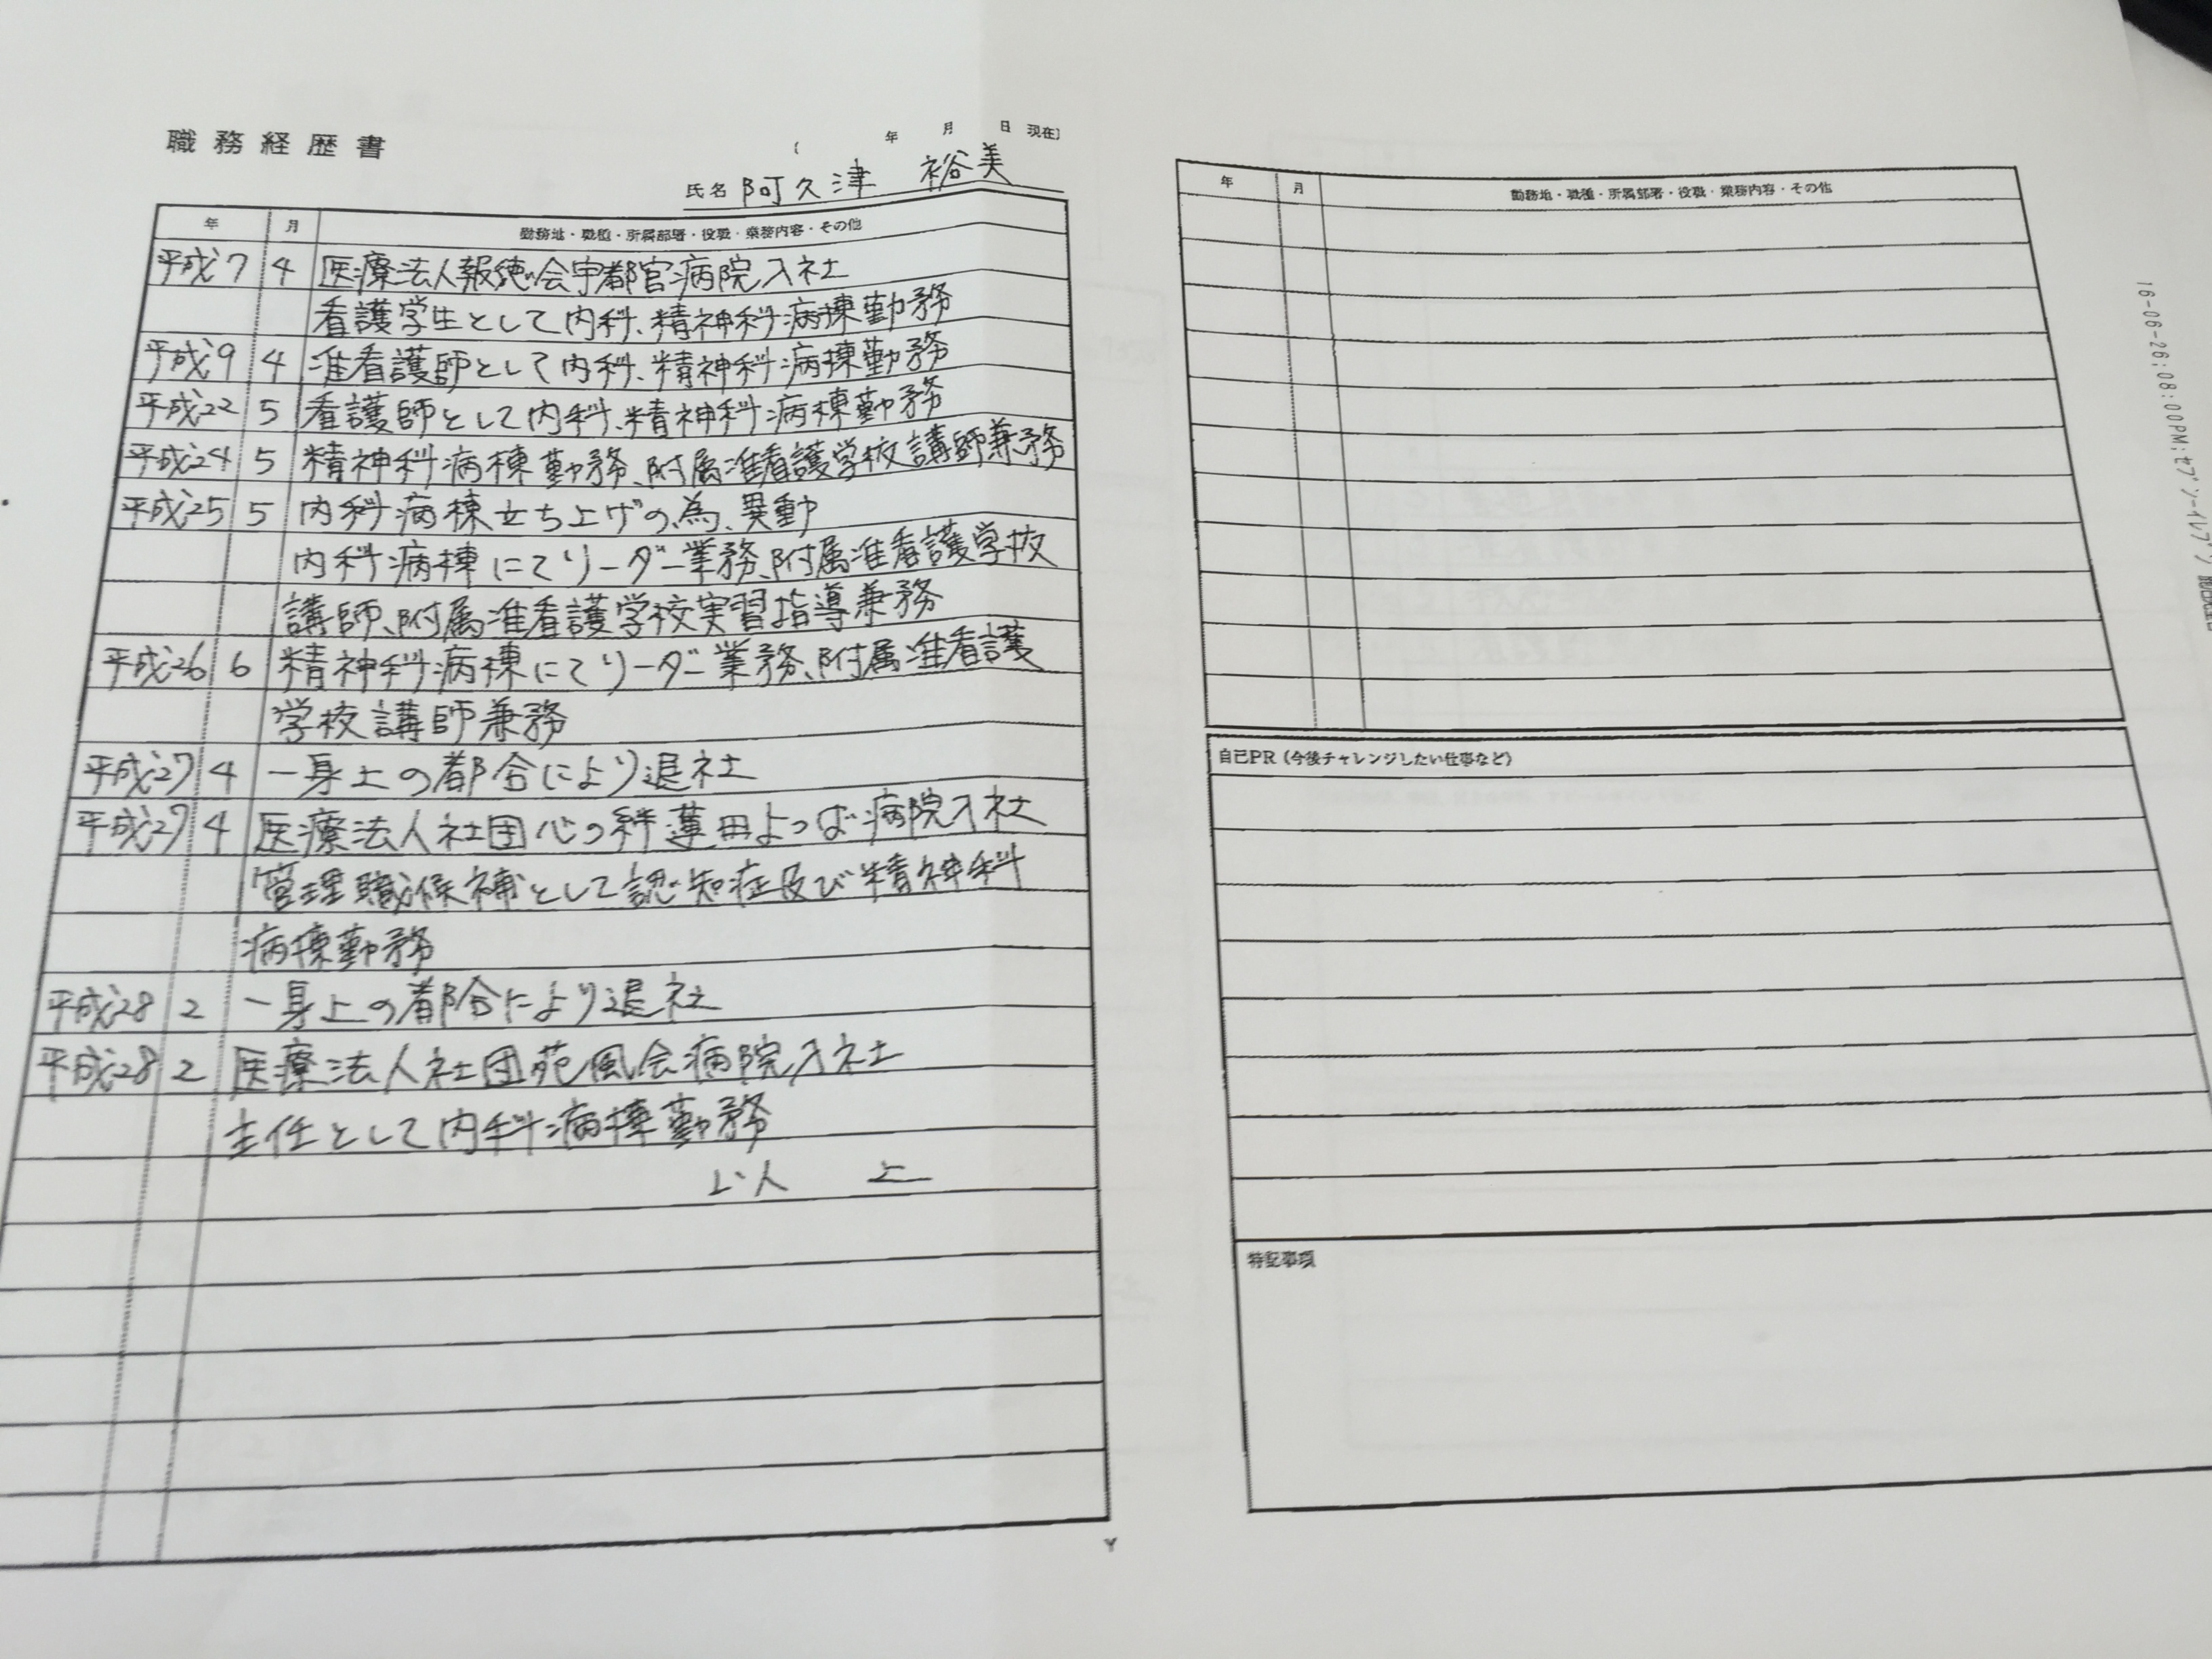 職務経歴書
年 月 日 現在)
氏名 阿久津 裕美
年 月 勤務地・職位・所属部署・役職・業務内容・その他
平成7 4 医療法人報徳会宇都宮病院入社
看護学生として内科、精神科病棟勤務
平成9 4 准看護師として内科、精神科病棟勤務
平成22 5 看護師として内科、精神科病棟勤務
平成24 5 精神科病棟勤務、附属准看護学校講師兼務
平成25 5 内科病棟立ち上げの為、異動
内科病棟にてリーダー業務、附属准看護学校
講師、附属准看護学校実習指導兼務
平成26 6 精神科病棟にてリーダー業務、附属准看護
学校講師兼務
平成27 4 一身上の都合により退社
平成27 4 医療法人社団心の絆蓮田よつば病院入社
管理職候補として認知症及び精神科
病棟勤務
平成28 2 一身上の都合により退社
平成28 2 医療法人社団 会病院入社
主任として内科病棟勤務
以上
年 月 勤務地・職種・所属部署・役職・業務内容・その他
自己PR(今後チャレンジしたい仕事など)
特記事項
16-06-26;08:00PM;セブン-イレブン